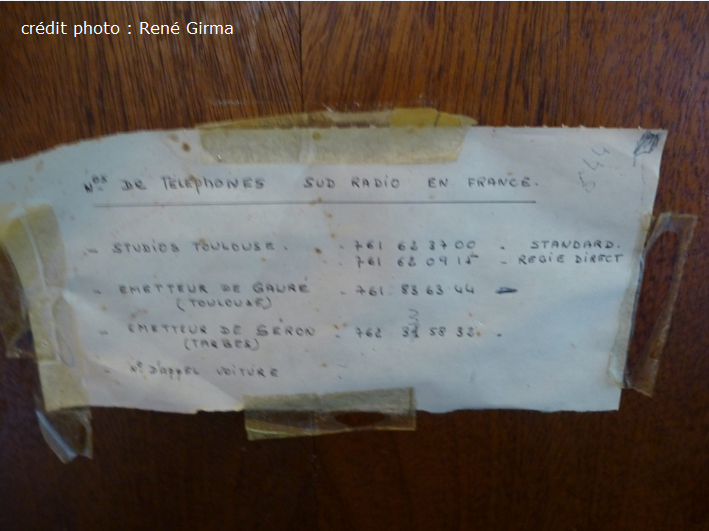 crédit photo : René Girma
Nos DE TELEPHONES SUD RADIO EN FRANCE.
- STUDIOS TOULOUSE. - 761 62 37 00 - STANDARD.
- 761 62 09 15 - REGIE DIRECT
- EMETTEUR DE GAURÉ - 761 83 63 44 -
(TOULOUSE)
- EMETTEUR DE SÉRON - 762 58 32 -
(TARBES)
- No D'APPEL VOITURE